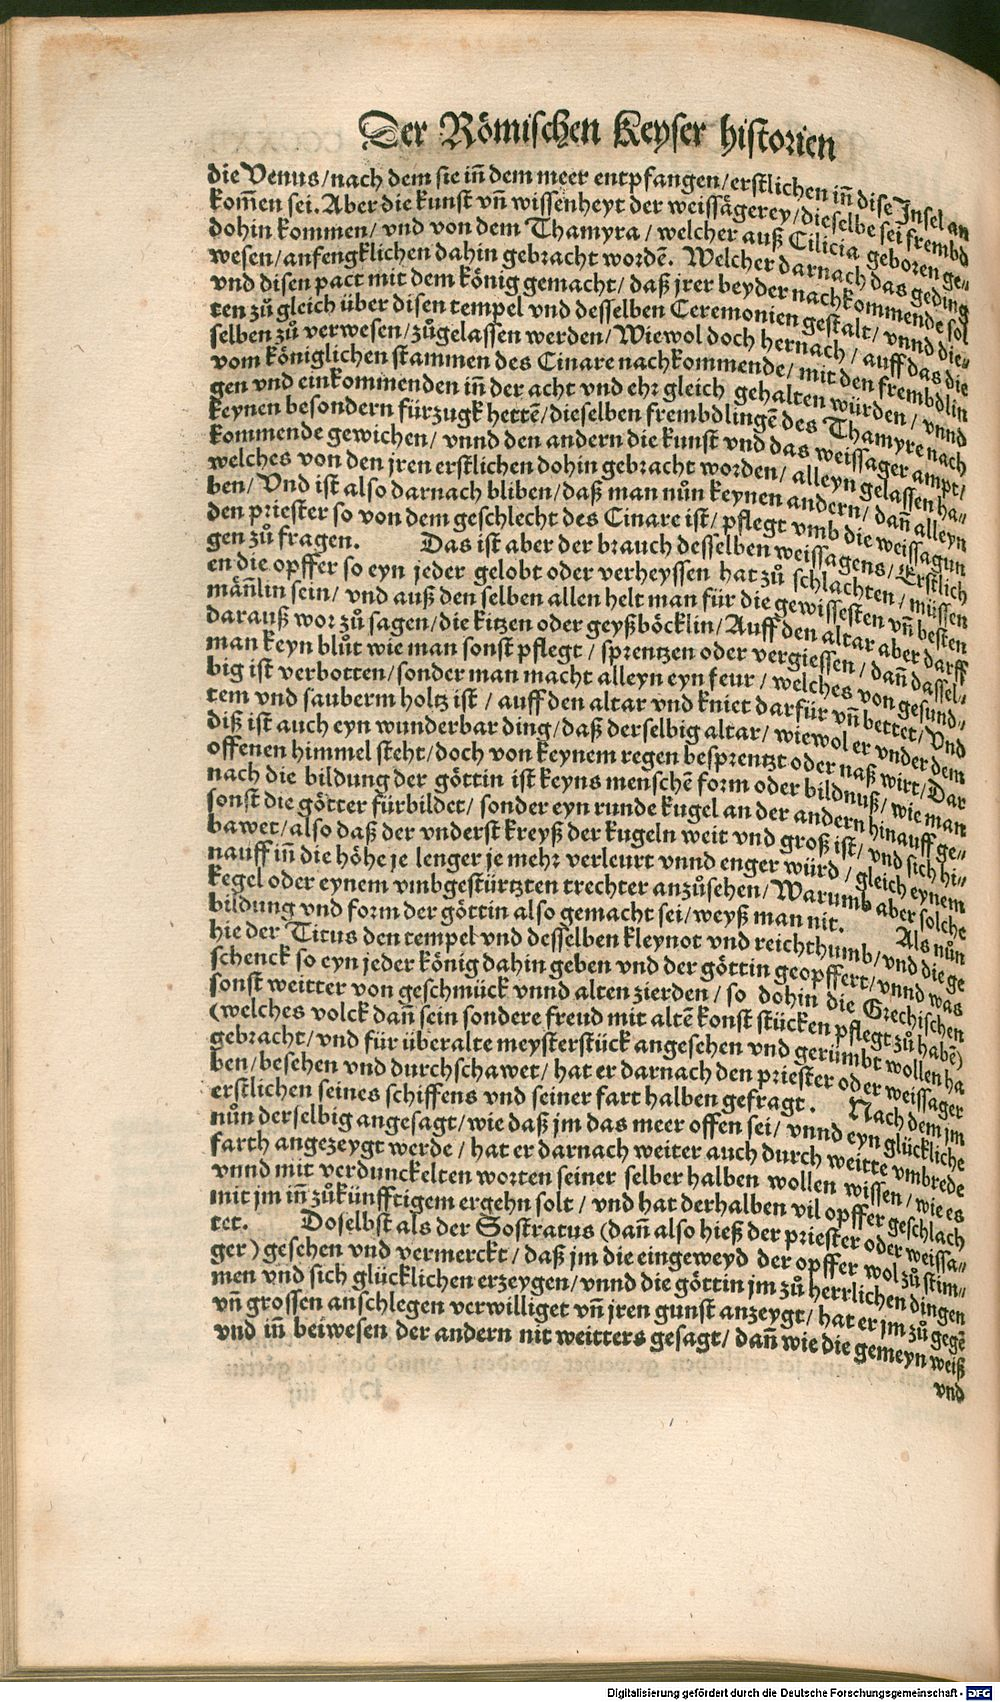 Der Römischen Keyser historien
die Venus/nach dem sie iñ dem meer entpfangen/erstlichen iñ dise Insel an
kom̃en sei. Aber die kunst vñ wissenheyt der weissägerey/dieselbe sei frembd
dohin kommen/ vnd von dem Thamyra/ welcher auß Cilicia geboren ge⸗
wesen/anfengklichen dahin gebracht wordẽ. Welcher darnach das geding
vnd disen pact mit dem könig gemacht/ daß jrer beyder nachkommende sol
ten zů gleich über disen tempel vnd desselben Ceremonien gestalt/ vnnd die⸗
selben zů verwesen/zůgelassen werden/ Wiewol doch hernach/ auff das die
vom königlichen stammen des Cinare nachkommende/ mit den frembdlin
gen vnd einkommenden iñ der acht vnd ehr gleich gehalten würden/ vnnd
keynen besondern fürzugk hettẽ/dieselben frembdlingẽ des Thamyre nach
kommende gewichen/ vnnd den andern die kunst vnd das weissager ampt/
welches von den jren erstlichen dohin gebracht worden/ alleyn gelassen ha⸗
ben/ Vnd ist also darnach bliben/daß man nůn keynen andern/ dañ alleyn
den priester so von dem geschlecht des Cinare ist/ pflegt vmb die weissagun
gen zů fragen. Das ist aber der brauch desselben weissagens/ Erstlich
en die opffer so eyn jeder gelobt oder verheyssen hat zů schlachten/ müssen
mäñlin sein/ vnd auß den selben allen helt man für die gewissesten vñ besten
darauß wor zů sagen/die kitzen oder geyßböcklin/ Auff den altar aber darff
man keyn blůt wie man sonst pflegt/ sprentzen oder vergiessen/ dañ dassel⸗
big ist verbotten/sonder man macht alleyn eyn feur/ welches von gesund⸗
tem vnd sauberm holtz ist/ auff den altar vnd kniet darfür vñ bettet/ Vnd
diß ist auch eyn wunderbar ding/daß derselbig altar/ wiewol er vnder dem
offenen himmel steht/doch von keynem regen besprentzt oder naß wirt/ Dar
nach die bildung der göttin ist keyns menschẽ form oder bildnuß/ wie man
sonst die götter fürbildet/ sonder eyn runde kugel an der andern hinauff ge⸗
bawet/also daß der vnderst kreyß der kugeln weit vnd groß ist/ vnd sich hi⸗
nauff iñ die höhe je lenger je mehr verleurt vnnd enger würd/ gleich eynem
kegel oder eynem vmbgestürtzten trechter anzůsehen/ Warumb aber solche
bildung vnd form der göttin also gemacht sei/weyß man nit. Als nůn
hie der Titus den tempel vnd desselben kleynot vnd reichthumb/ vnd die ge
schenck so eyn jeder könig dahin geben vnd der göttin geopffert/ vnnd was
sonst weitter von geschmück vnnd alten zierden/ so dohin die Grechischen
(welches volck dañ sein sondere freud mit altẽ konst stücken pflegt zů habẽ)
gebracht/ vnd für überalte meysterstück angesehen vnd gerümbt wollen ha
ben/besehen vnd durchschawet/ hat er darnach den priester oder weissager
erstlichen seines schiffens vnd seiner fart halben gefragt. Nach dem jm
nůn derselbig angesagt/wie daß jm das meer offen sei/ vnnd eyn glückliche
farth angezeygt werde/ hat er darnach weiter auch durch weitte vmbrede
vnnd mit verdunckelten worten seiner selber halben wollen wissen/ wie es
mit jm iñ zůkünfftigem ergehn solt/ vnd hat derhalben vil opffer geschlach
tet. Doselbst als der Sostratus (dañ also hieß der priester oder weissa⸗
ger) gesehen vnd vermerckt/ daß jm die eingeweyd der opffer wol zů stim⸗
men vnd sich glücklichen erzeygen/vnnd die göttin jm zů herrlichen dingen
vñ grossen anschlegen verwilliget vñ jren gunst anzeygt/ hat er jm zů gegẽ
vnd iñ beiwesen der andern nit weitters gesagt/ dañ wie die gemeyn weiß
vnd
Digitalisierung gefördert durch die Deutsche Forschungsgemeinschaft - DFG